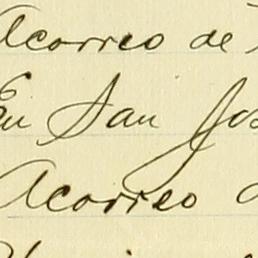 Acorreo de
En San Jos
Acorreo